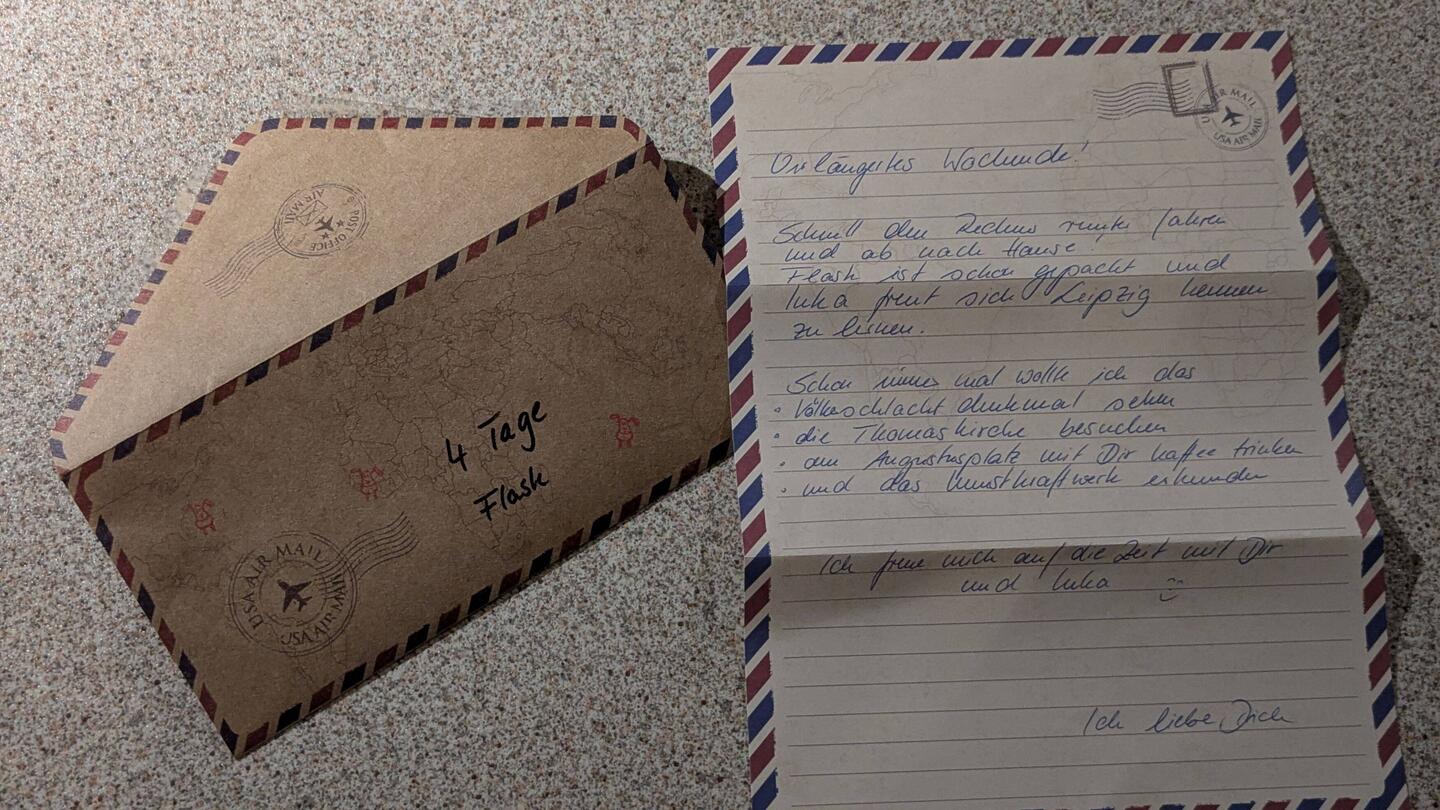 POST OFFICE
AIR MAIL
4 Tage
Flask
USA AIR MAIL
USA AIR MAIL
AIR MAIL
USA AIR MAIL
Verlängertes Wochende!
Schnell den Rechner runter fahren
und ab nach Hause!
Flask ist schon gepackt und
Inka freut sich Leipzig kennen
zu lernen.
Schon immer mal wollte ich das
• Völkerschlachtdenkmal sehen
• die Thomaskirche besuchen
• am Augustusplatz mit Dir Kaffee trinken
• und das Kunstkraftwerk erkunden
Ich freue mich auf die Zeit mit Dir
und Inka
Ich liebe Dich